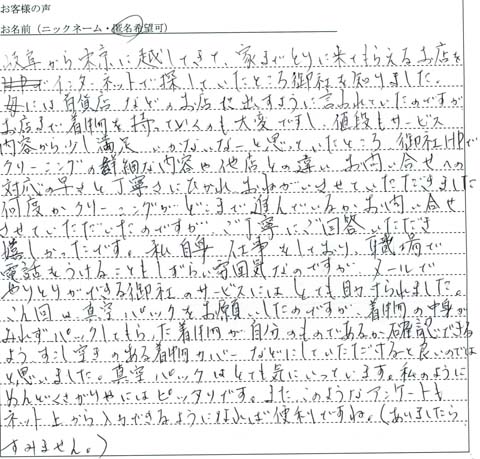 お客様の声
お名前（ニックネーム・匿名希望可）
岐阜から東京に越してきて、家までとりに来てもらえるお店を
インターネットで探していたところ御社を知りました。
母には百貨店などのお店に出すように言われていたのですが
お店まで着物を持っていくのも大変ですし、値段もサービス
内容から少し満足いかないなーと思っていたところ、御社HPで
クリーニングの詳細な内容や他店との違い、お問い合せへの
対応の早さと丁寧さにひかれ、おねがいさせていただきました
何度かクリーニングがどこまで進んでいるかお問い合せ
させていただいたのですが、ご丁寧にご回答いただき
嬉しかったです。私自身、仕事をしており、職場で
電話をうけることもしずらい雰囲気なのですが、メールで
やりとりができる御社のサービスにはとても助けられました。
今回は真空パックをお願いしたのですが、着物の中身が
みれずパックしてもらった着物が自分のものであるか確認できる
ようすこし空きのある着物カバーなどにしていただけると良いのでは
と思いました。真空パックはとても気にいっています。私のように
めんどくさがりやにはピッタリです。また、このようなアンケートも
ネット上から入力できるようになれば便利ですね。（ありましたら
すみません。）